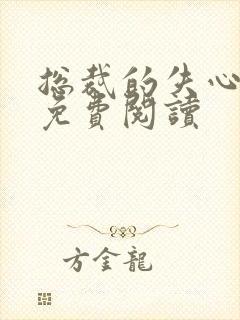 總裁的失心
免費閱讀
方金龍